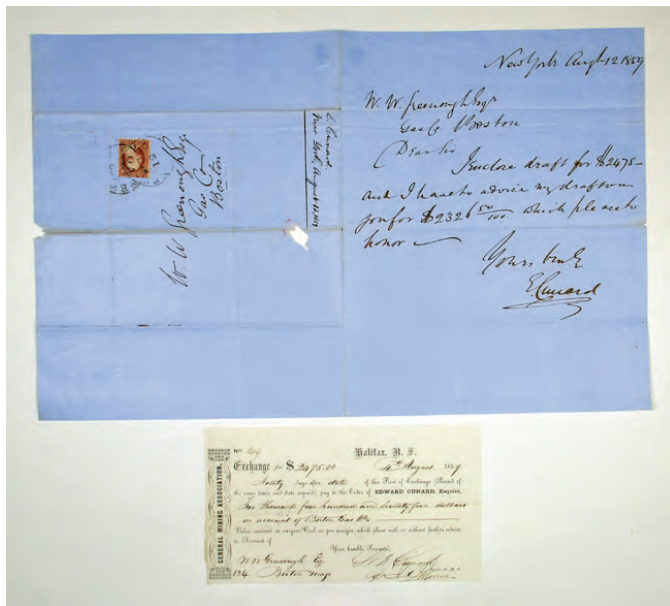 New York Aug 12 1859
W. W. Greenough Esqr
Gas Co Boston
Dear Sir
I enclose draft for $2475 –
and I have to advise my draft on
you for $2326 50/100. which please
honor
Yours truly
E Cunard
E. Cunard
New York, August 12, 1859
W. W. Greenough Esqr
Gas Co
Boston
GENERAL MINING ASSOCIATION.
No.
Halifax, N. S.
Exchange for $2475.00
4th August 1859
Ninety days after date of this First of Exchange (Second of
the same tenor and date unpaid) pay to the Order of EDWARD CUNARD, Esquire,
Two thousand four hundred and seventy five dollars
on account of Boston Gas Co
Value received in cargoes Coal as per margin, which place with or without further advice
to Account of
Your humble Servants,
W W Greenough Esq
124 Boston Mass